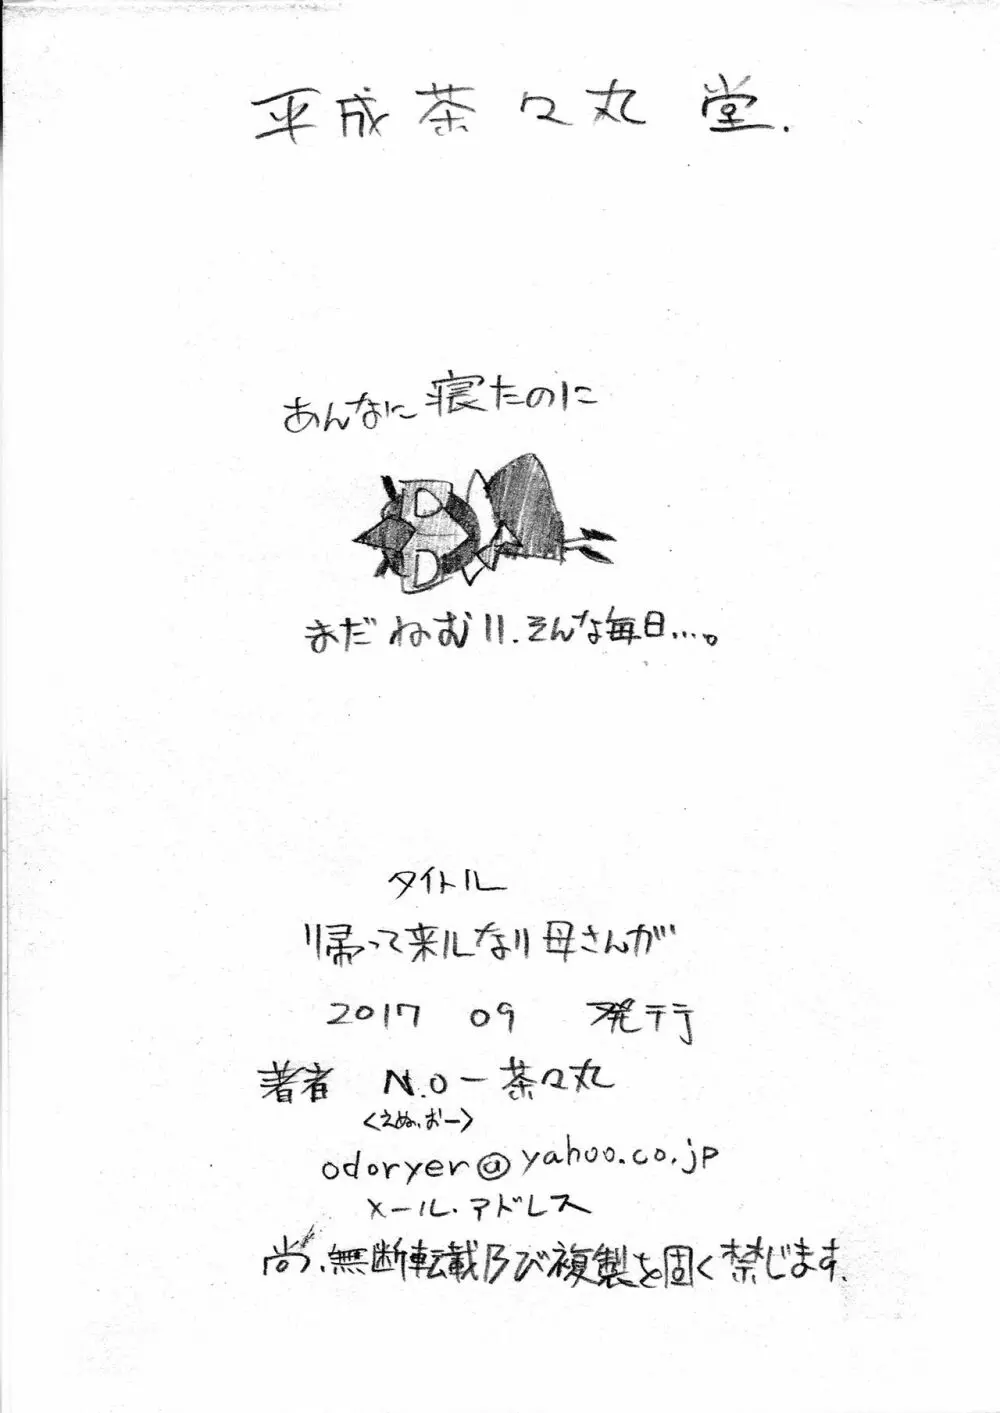 平成茶々丸堂.
あんなに寝たのに
まだねむりl.そんな毎日…。
タイトル
帰って来ルなり母さんが
2017 09 発行
著者 N.O-茶々丸
<えぬ.おー>
odoryer@yahoo.co.jp
メール.アドレス
尚.無断転載及び複製を固く禁じます.